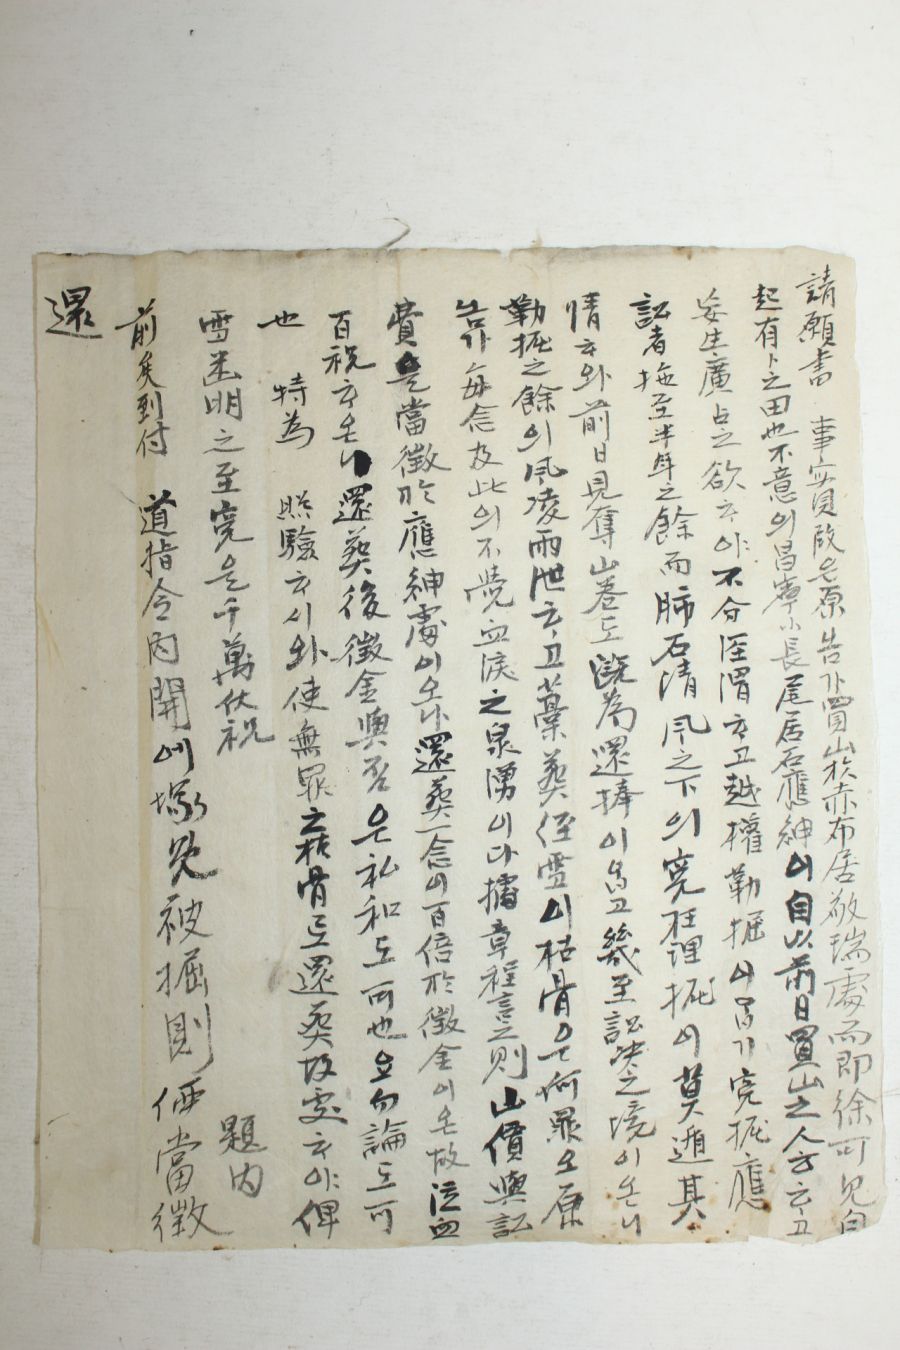 請願書 事實段은 原告가 買山於赤布居敬瑞處而即徐可見白
起有卜之田也 不意의 昌寧小長尾居石應紳이 自以前日買山之人方云고
妄生廣占之欲하야 不分涇渭하고 越權勒掘이음기 寃掘應
訟者拖至半年之餘而肺石淸風之下의 寃枉理掘이 莫遁其
情하와 前日見奪山巻도 旣為還捧이옵고 幾至訟决之境이온니
勒掘之餘의 風凌雨泄하고 藁葬經雪이 枯骨은 何罪오 原
告가 每念及此의 不覺血淚之泉湧이다 據章程言之則山價與訟
費을 當徵於應紳處이오나 還葬一念이 百倍於徵金이온故泣血
百祝하온니 還葬後徵金與否은 私和도 可也오 勿論도 可
也 特為 照驗하시와 使無罪之枯骨도 還葬故處하야 俾
雪幽明之至寃을 千萬伏祝 題內
前矣到付 道指令內開此塚免被掘則価當徵
還